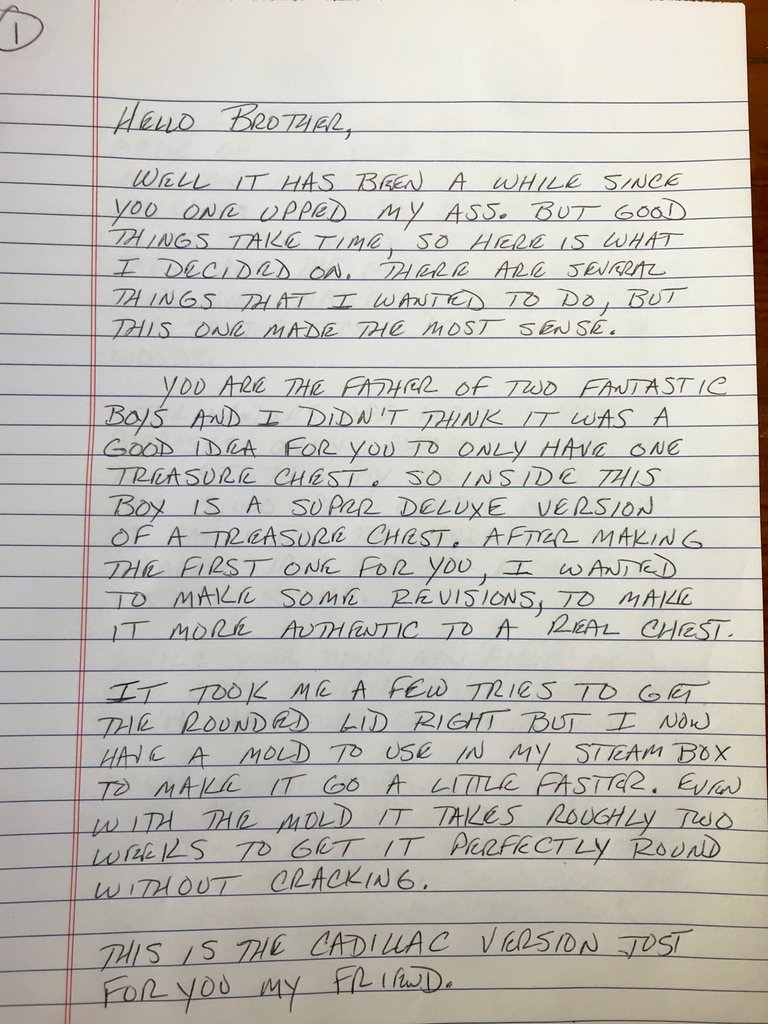 1
HELLO BROTHER,
WELL IT HAS BEEN A WHILE SINCE
YOU ONE UPPED MY ASS. BUT GOOD
THINGS TAKE TIME, SO HERE IS WHAT
I DECIDED ON. THERE ARE SEVERAL
THINGS THAT I WANTED TO DO, BUT
THIS ONE MADE THE MOST SENSE.
YOU ARE THE FATHER OF TWO FANTASTIC
BOYS AND I DIDN'T THINK IT WAS A
GOOD IDEA FOR YOU TO ONLY HAVE ONE
TREASURE CHEST. SO INSIDE THIS
BOX IS A SUPER DELUXE VERSION
OF A TREASURE CHEST. AFTER MAKING
THE FIRST ONE FOR YOU, I WANTED
TO MAKE SOME REVISIONS, TO MAKE
IT MORE AUTHENTIC TO A REAL CHEST.
IT TOOK ME A FEW TRIES TO GET
THE ROUNDED LID RIGHT BUT I NOW
HAVE A MOLD TO USE IN MY STEAM BOX
TO MAKE IT GO A LITTLE FASTER. EVEN
WITH THE MOLD IT TAKES ROUGHLY TWO
WEEKS TO GET IT PERFECTLY ROUND
WITHOUT CRACKING.
THIS IS THE CADILLAC VERSION JUST
FOR YOU MY FRIEND.